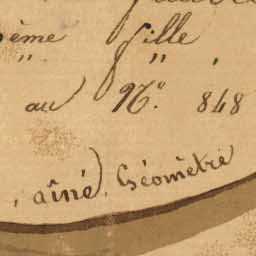 ème fille
" "
au N.° 848
aîné, Géomètre